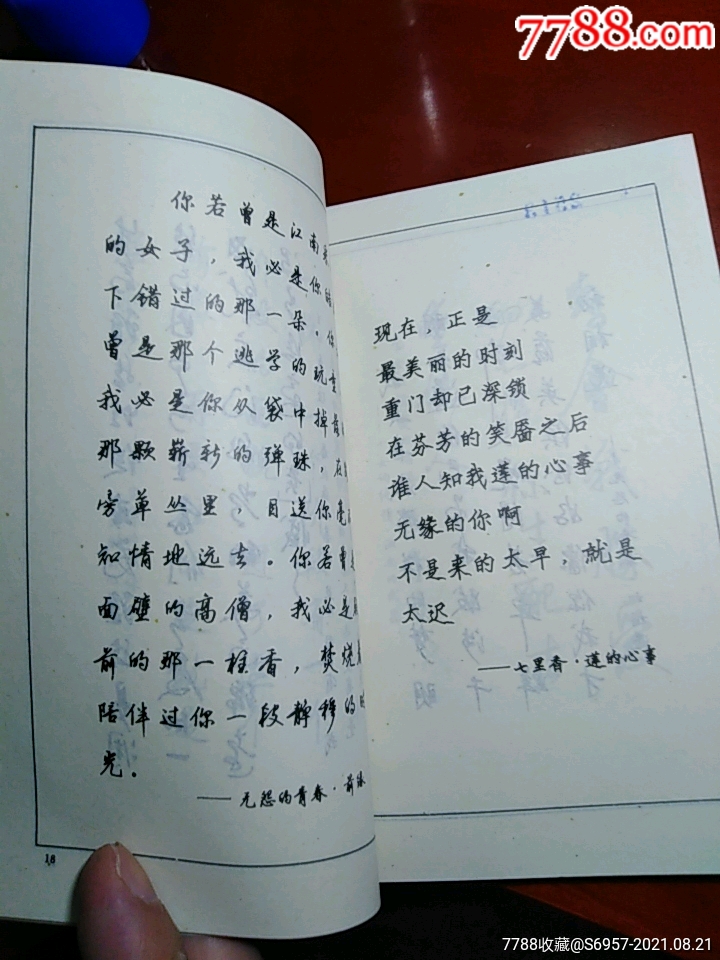 7788.com
你若曾是江南
的女子，我必是你
下错过的那一朵。你
曾是那个逃学的玩童
我必是你从袋中掉落
那颗崭新的弹珠，在
旁草丛里，目送你毫
知情地远去。你若曾
面壁的高僧，我必是
前的那一柱香，焚烧
陪伴过你一段静穆的时
光。
——无怨的青春·前缘
18
2513
现在，正是
最美丽的时刻
重门却已深锁
在芬芳的笑靥之后
谁人知我莲的心事
无缘的你啊
不是来的太早，就是
太迟
——七里香·莲的心事
7788收藏@S6957-2021.08.21